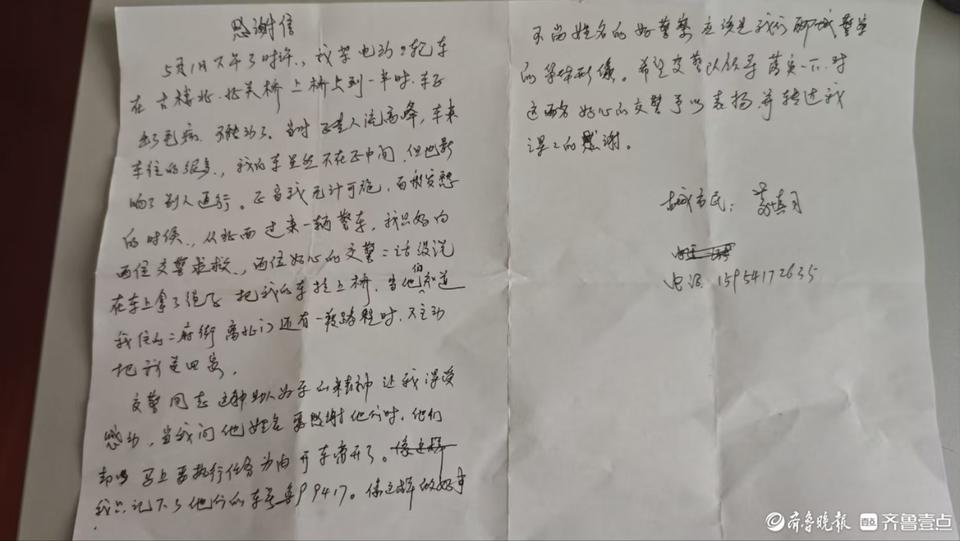 感谢信
5月1日下午3时许，我骑电动三轮车
在古楼北，北关桥上桥上到一半时，车子
出了毛病，不能动了。当时正是人流高峰，车来
车往的很多，我的车虽然不在正中间，但也影
响了别人通行。正当我无计可施，百般发愁
的时候，从北面过来一辆警车，我只好向
两位交警求救，两位好心的交警二话没说
在车上拿了绳子把我的车拉上桥，当他们知道
我住的二府街离北门还有一段路程时，又主动
把我送回家。
交警同志这种助人为乐的精神让我深受
感动，当我问他姓名要感谢他们时，他们
却以马上要执行任务为由开车离开了。
我只记下了他们的车号鲁P9417。像这样做好事
不留姓名的好警察应该是我们聊城警察
的整体形像。希望交警队领导落实一下，对
这两名好心的交警予以表扬，并转达我
深深的感谢。
古城市民：
电话 15954172635
齐鲁晚报 齐鲁壹点